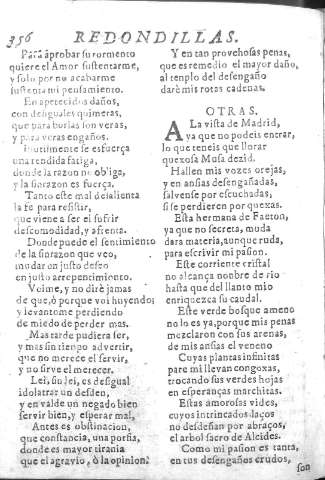 356 REDONDILLAS.
Para aprobar su tormento
quiere el Amor sustentarme,
y solo por no acabarme
sustenta mi pensamiento.
En apetecidos daños,
con desiguales quimeras,
que para burlas son veras,
y para veras engaños.
Inutilmente se esfuerça
una rendida fatiga,
donde la razon no obliga,
y la sinrazon es fuerça.
Tanto este mal de alienta
la fe para resistir,
que viene a ser el sufrir
descomodidad, y afrenta.
Donde puede el sentimiento
de la sinrazon que veo,
mudar en justo deseo
en justo arrepentimiento.
Voime, y no dirè jamas
de que, ò porque voi huyendo,
y levantome perdiendo
de miedo de perder mas.
Mas tarde pudiera ser,
y mas sin tiempo advertir,
que no merece el servir,
y no sirve el merecer.
Lei, sin lei, es desigual
idolatrar un desden,
y en valde un negado bien
servir bien, y esperar mal,
Antes es obstinacion,
que constancia, una porfia,
donde es mayor tirania
que el agravio, ò la opinion.
Y en tan provechosas penas,
que es remedio el mayor daño,
al templo del desengaño
darè mis rotas cadenas.
OTRAS.
A La vista de Madrid,
ya que no podeis entrar,
lo que teneis que llorar
quexosa Musa dezid.
Hallen mis vozes orejas,
y en ansias desengañadas,
salvense por escuchadas,
si se perdieren por quexas.
Esta hermana de Faeton,
ya que no secreta, muda
dara materia, aunque ruda,
para escrivir mi pasion.
Este corriente cristal
no alcança nonbre de rio
hasta que del llanto mio
enriquezca su caudal.
Este verde bosque ameno
no lo es ya, porque mis penas
mezclaron con sus arenas,
de mis ansias el veneno
Cuyas plantas infinitas
pare mi llevan congoxas,
trocando sus verdes hojas
en esperanças marchitas.
Estas amorosas vides,
cuyos intrincados laços
no desdeñan por abraços,
el arbol sacro de Alcides.
Como mi pasion es tanta,
en tus desengaños crudos,
son